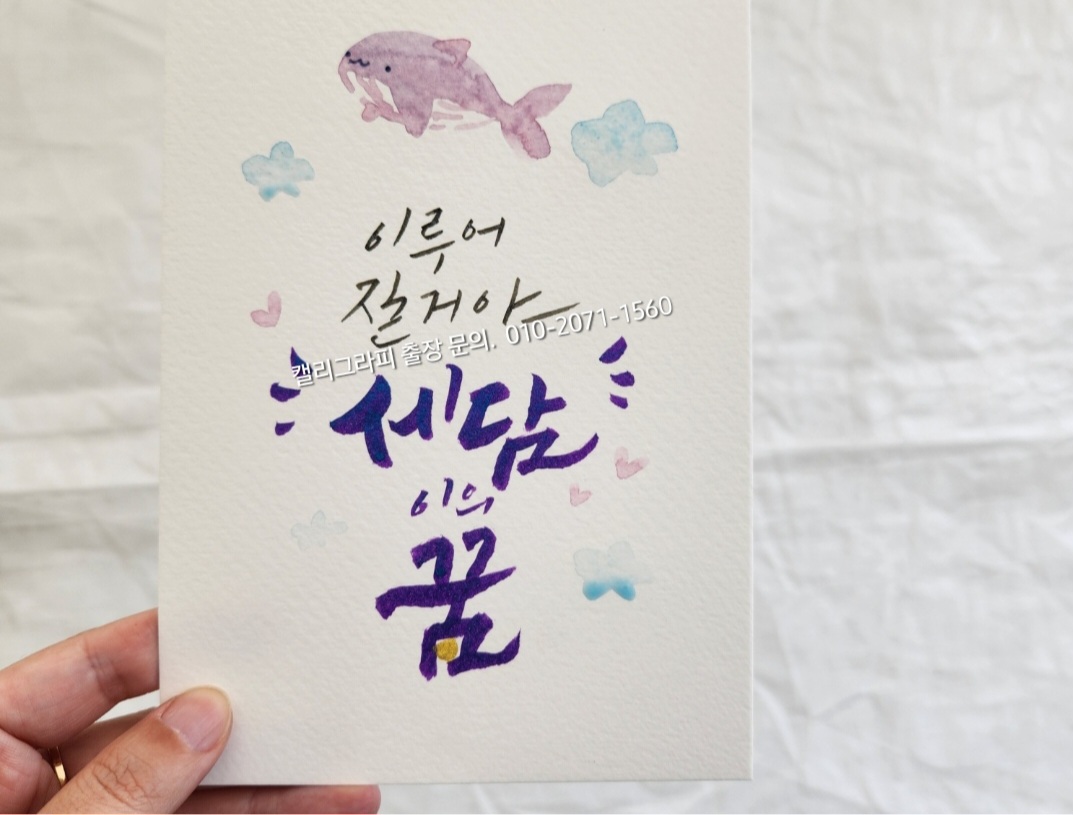 이루어
질거야
캘리그라피 출장 문의. 010-2071-1560
세담
이의
꿈